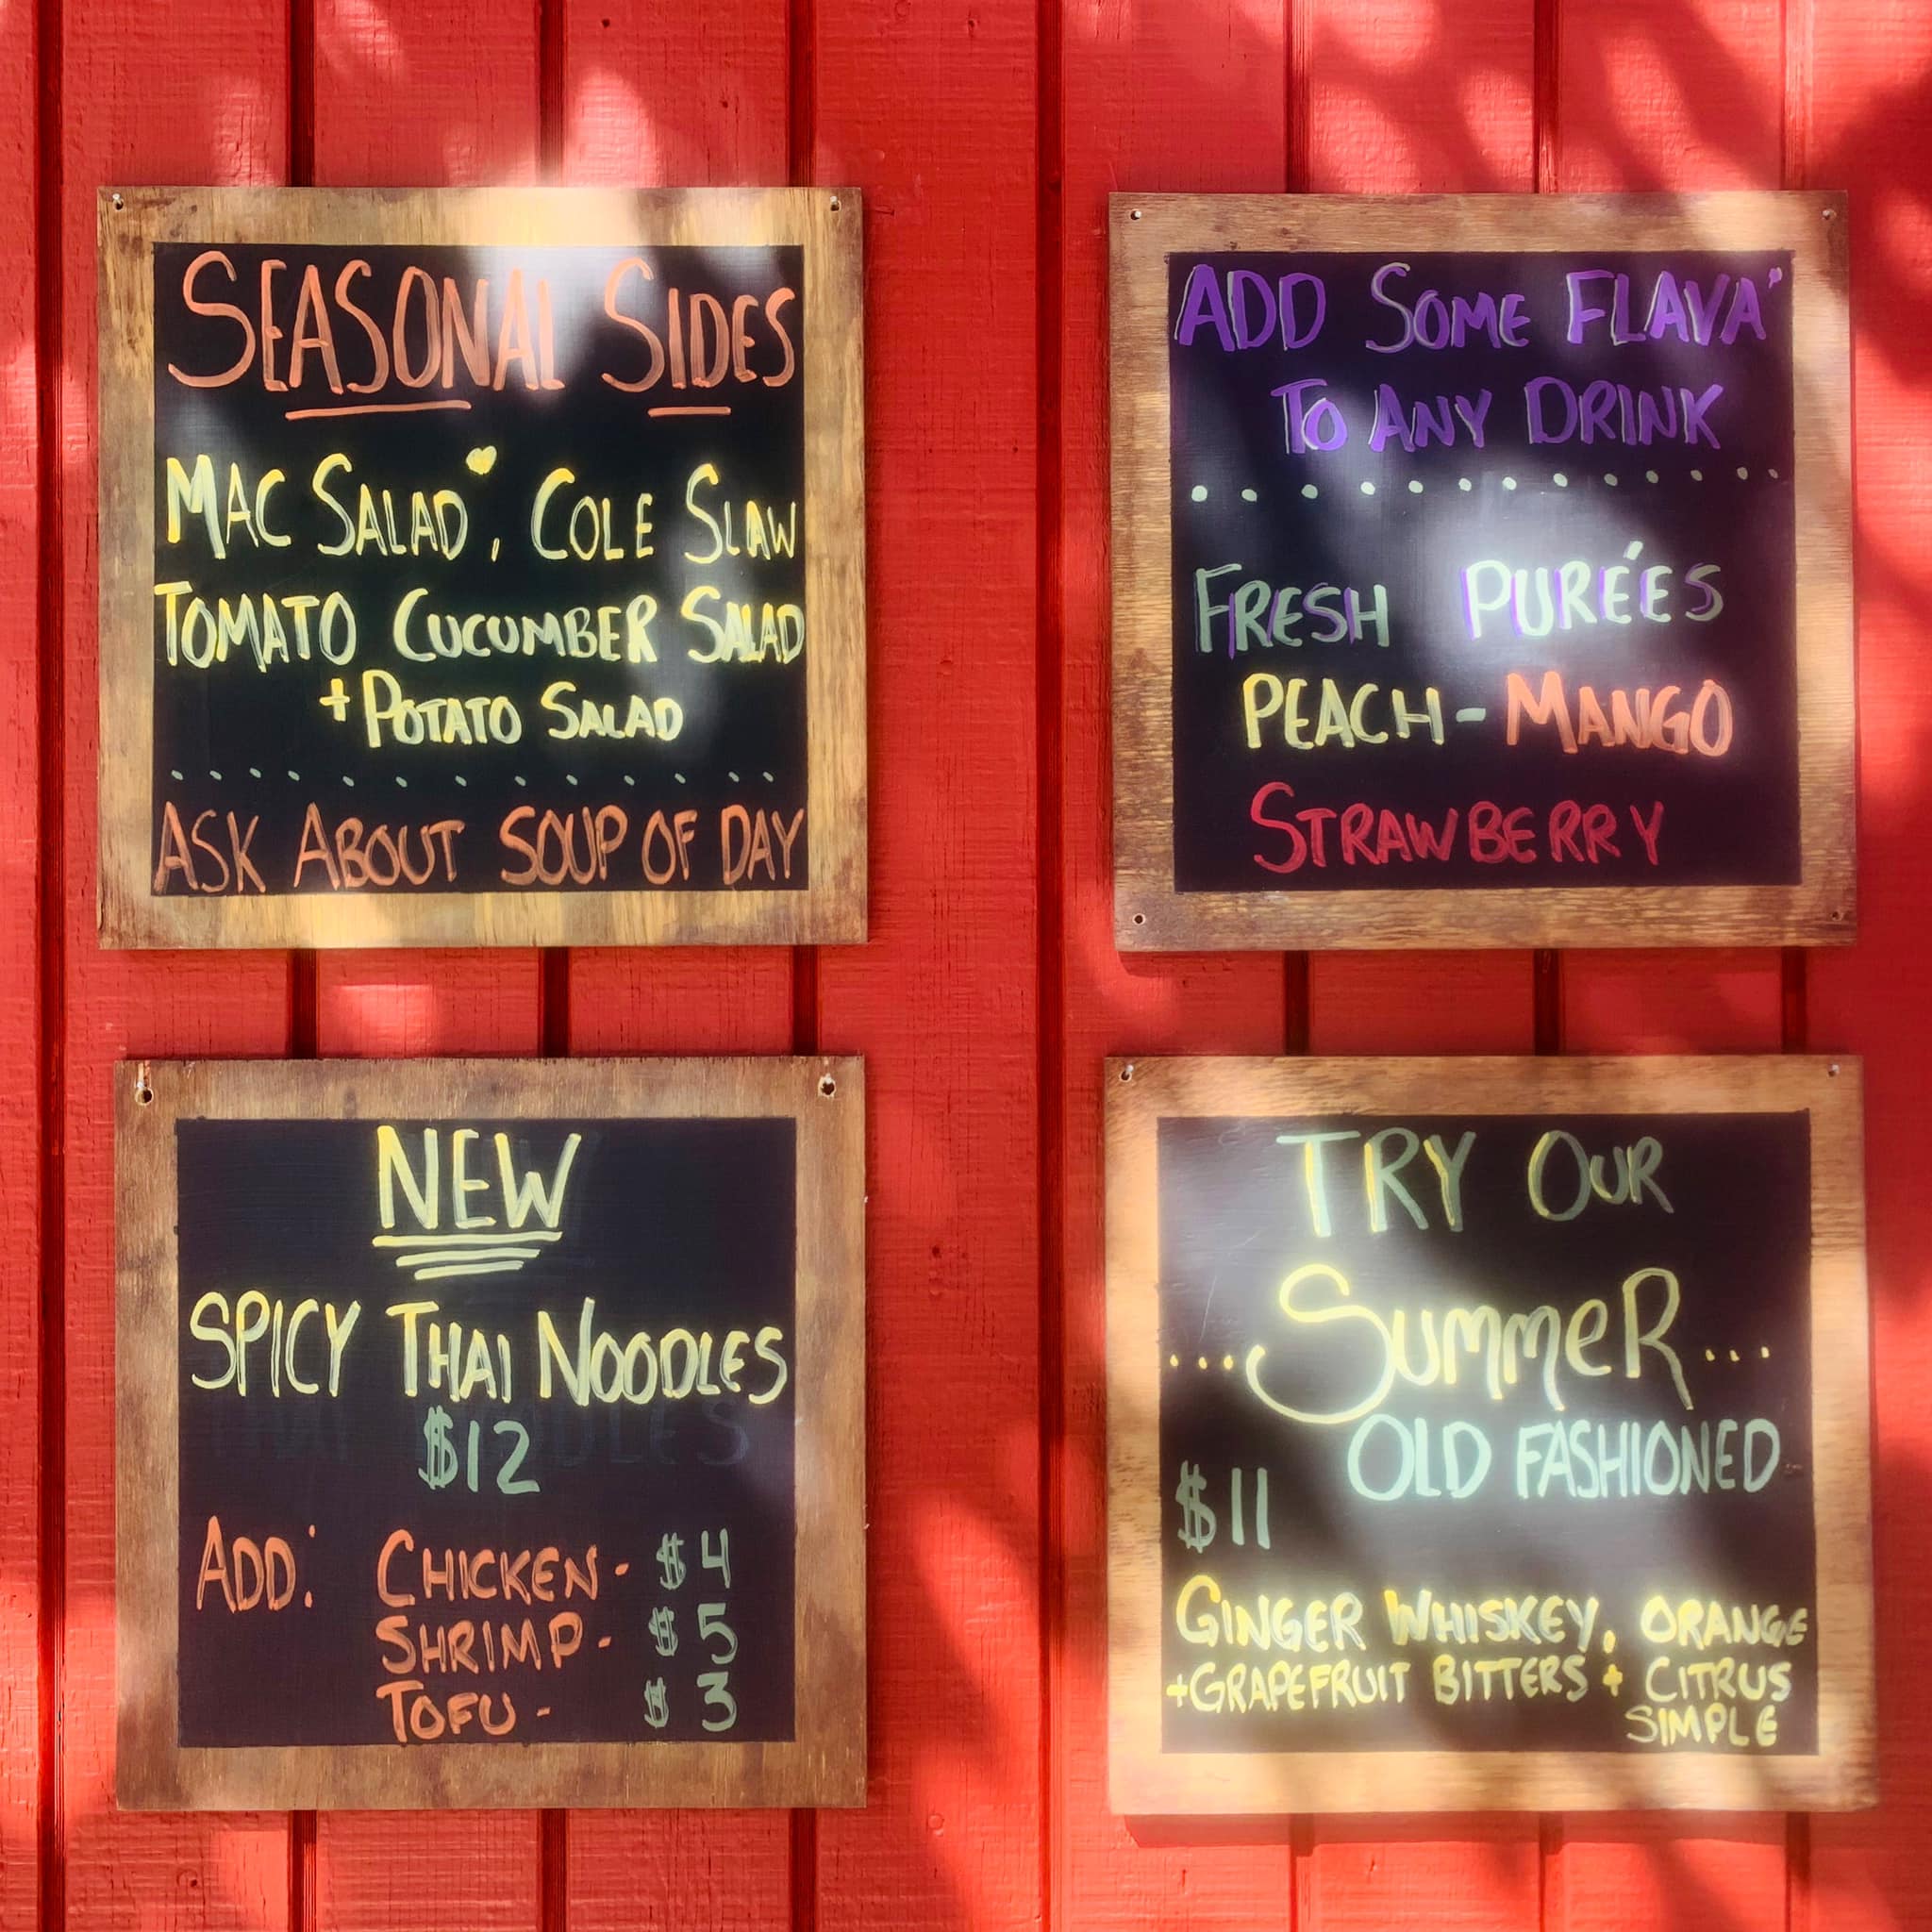 SEASONAL SIDES
MAC SALAD, COLE SLAW
TOMATO CUCUMBER SALAD
+ POTATO SALAD
ASK ABOUT SOUP OF DAY
ADD SOME FLAVA'
TO ANY DRINK
FRESH PURÉES
PEACH - MANGO
STRAWBERRY
NEW
SPICY THAI NOODLES
$12
ADD: CHICKEN - $4
SHRIMP - $5
TOFU - $3
TRY OUR
...SUMMER...
OLD FASHIONED
$11
GINGER WHISKEY, ORANGE
+ GRAPEFRUIT BITTERS + CITRUS
SIMPLE